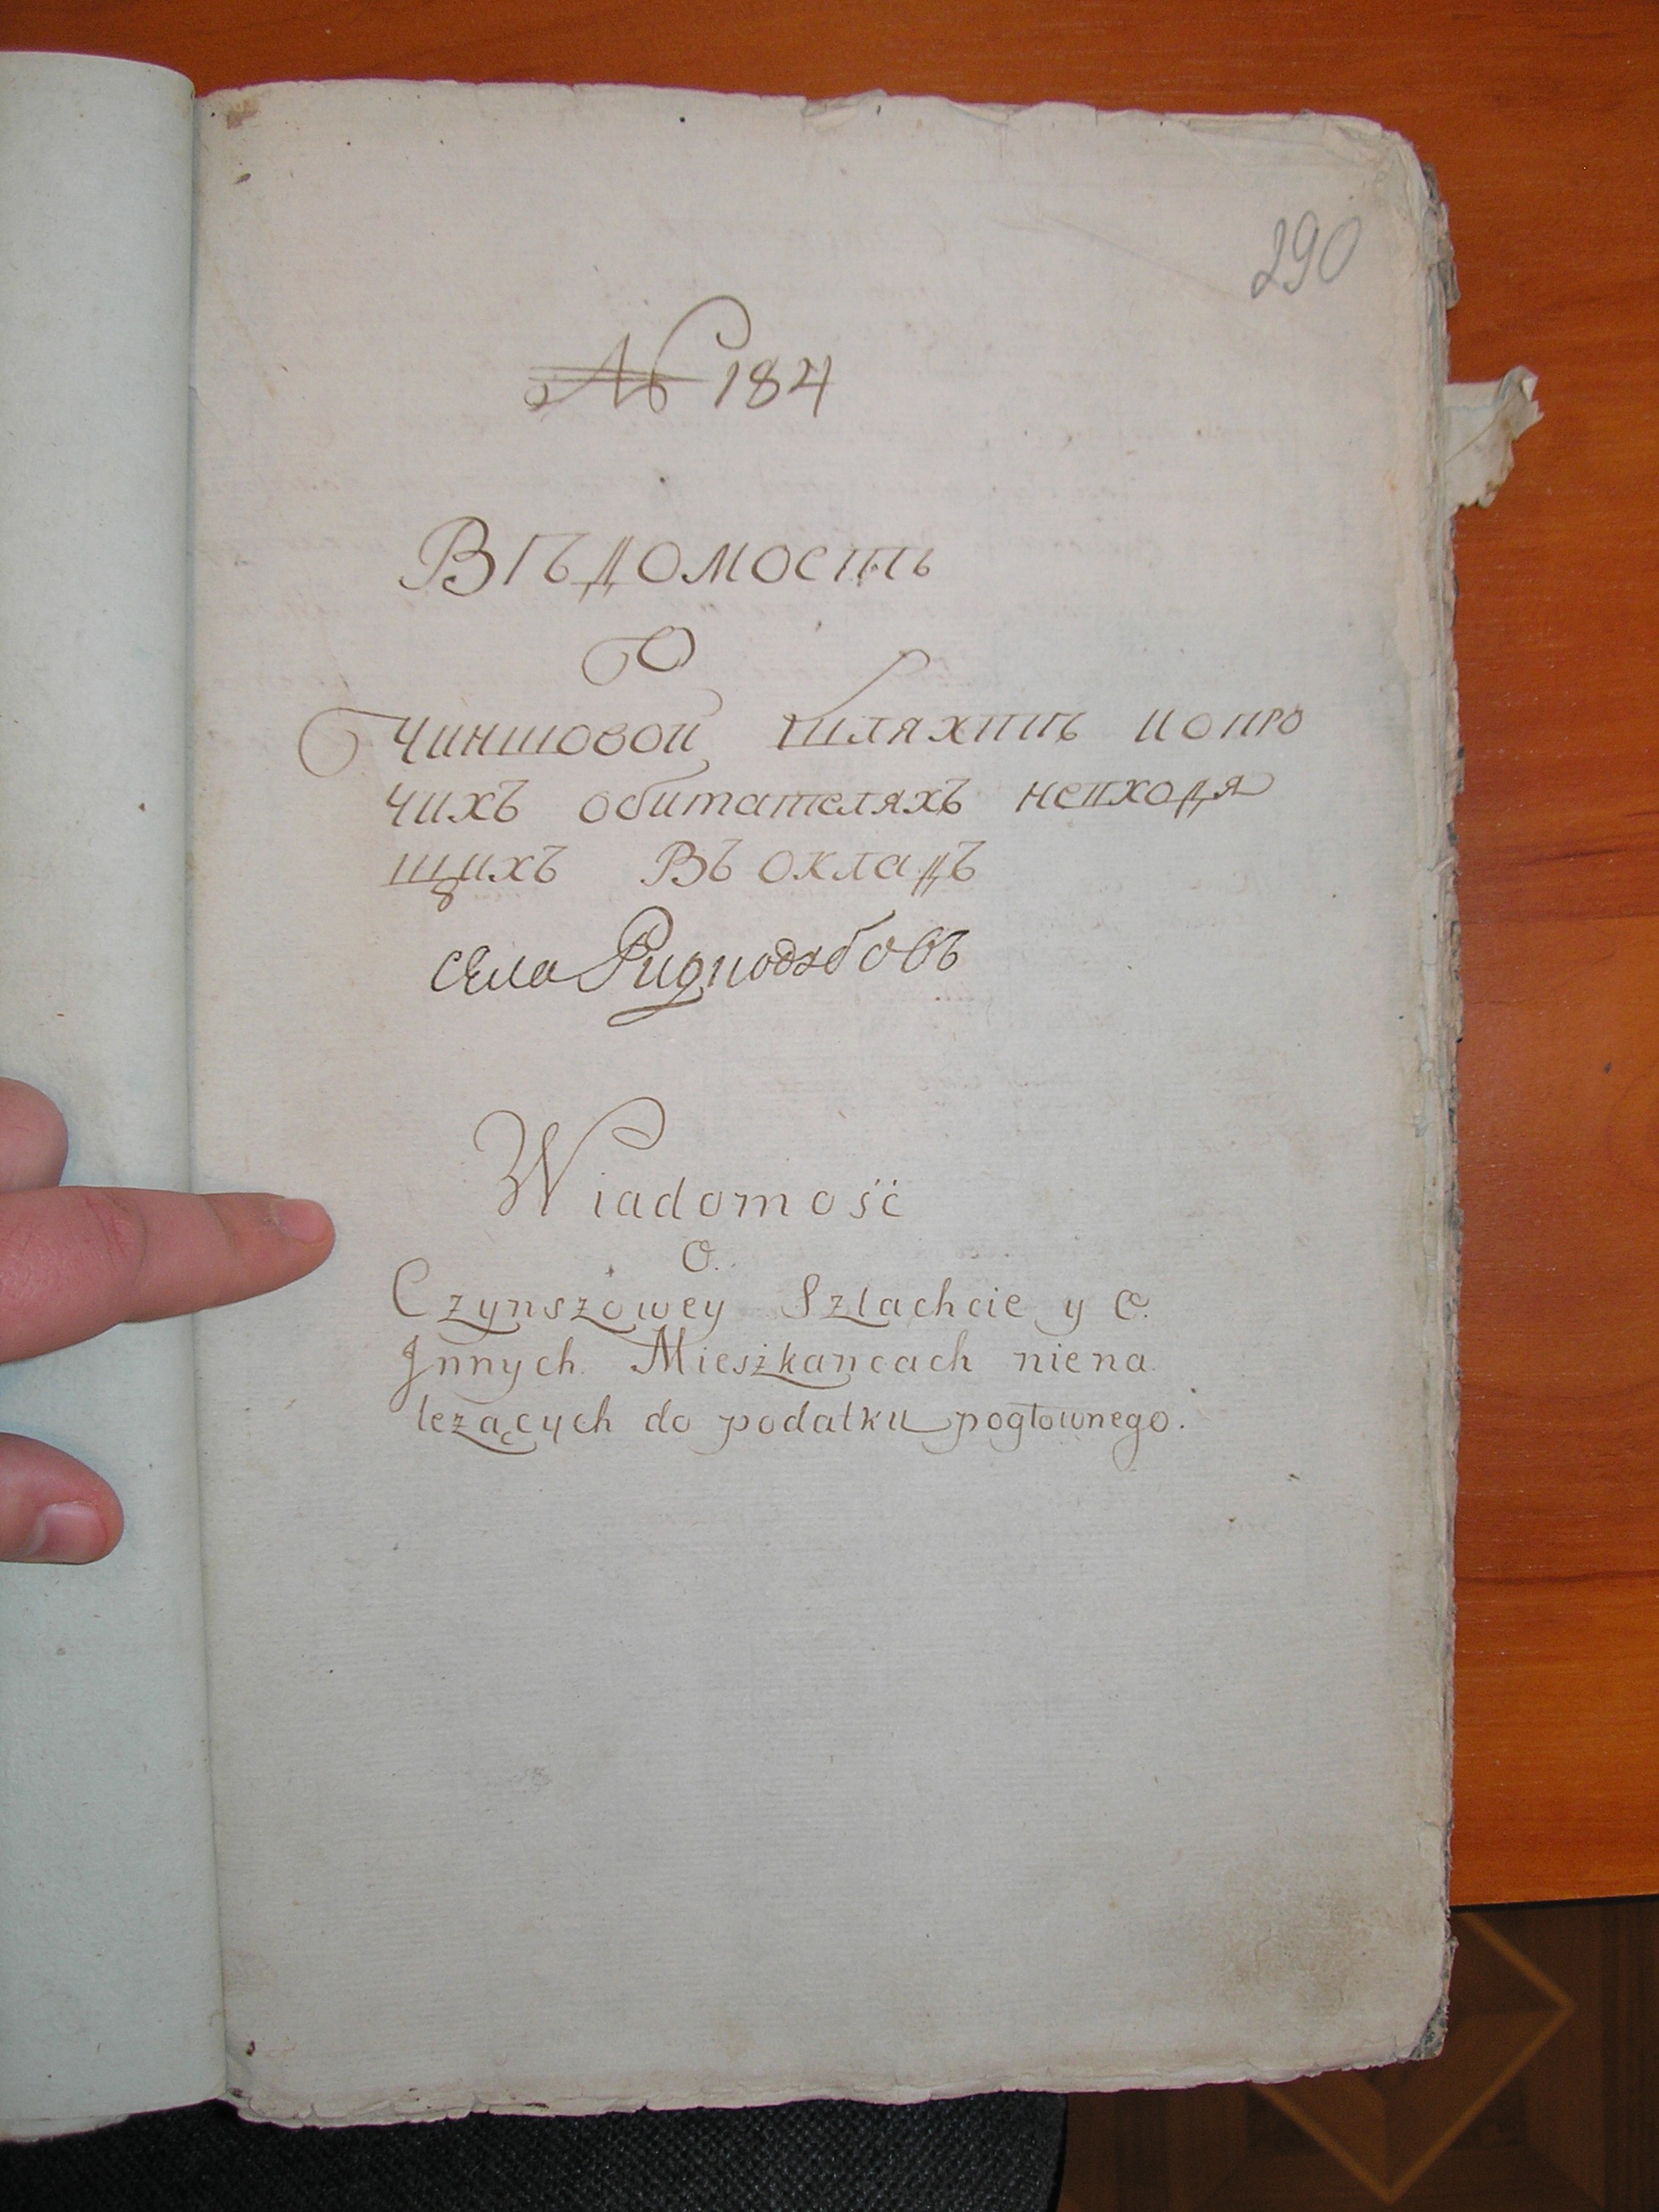 290
№ 184
Вѣдомость
О
Чиншовой шляхтѣ и о про
чихъ обитателяхъ невходя
щихъ Въ окладъ
села
Wiadomość
O.
Czynszowey Szlachcie y o.
Jnnych. Mieszkancach niena
leżących do podatku pogłownego.